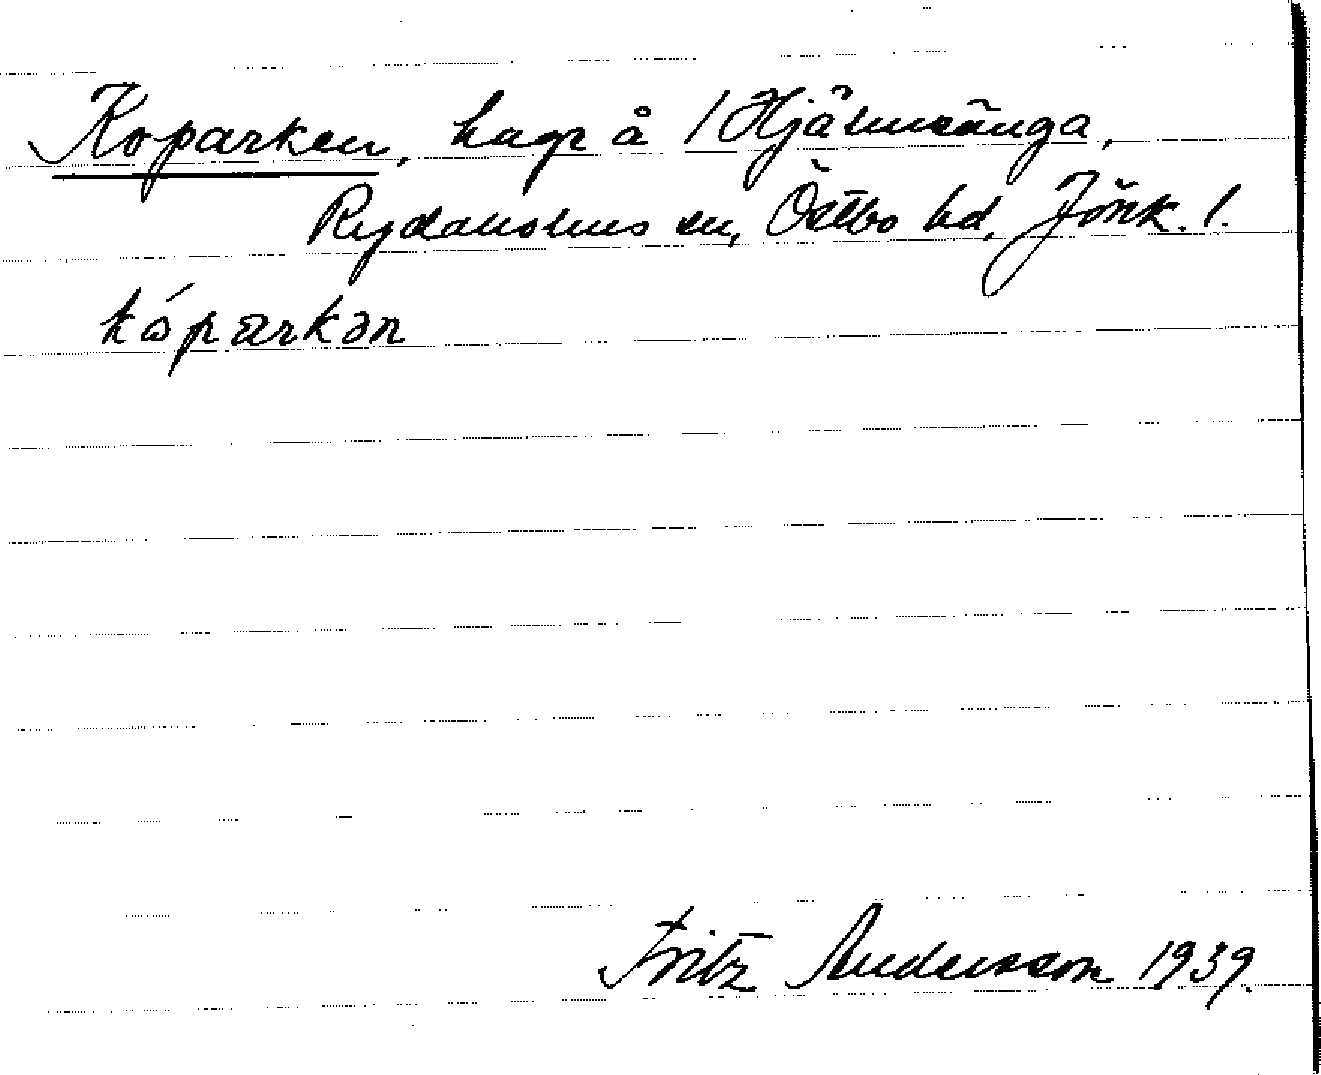 Koparken, hage å 1 Hjälmsänga,
Rydaholms sn, Östbo hd, Jönk. l.
kóparkən
Fritz Andersson 1939.